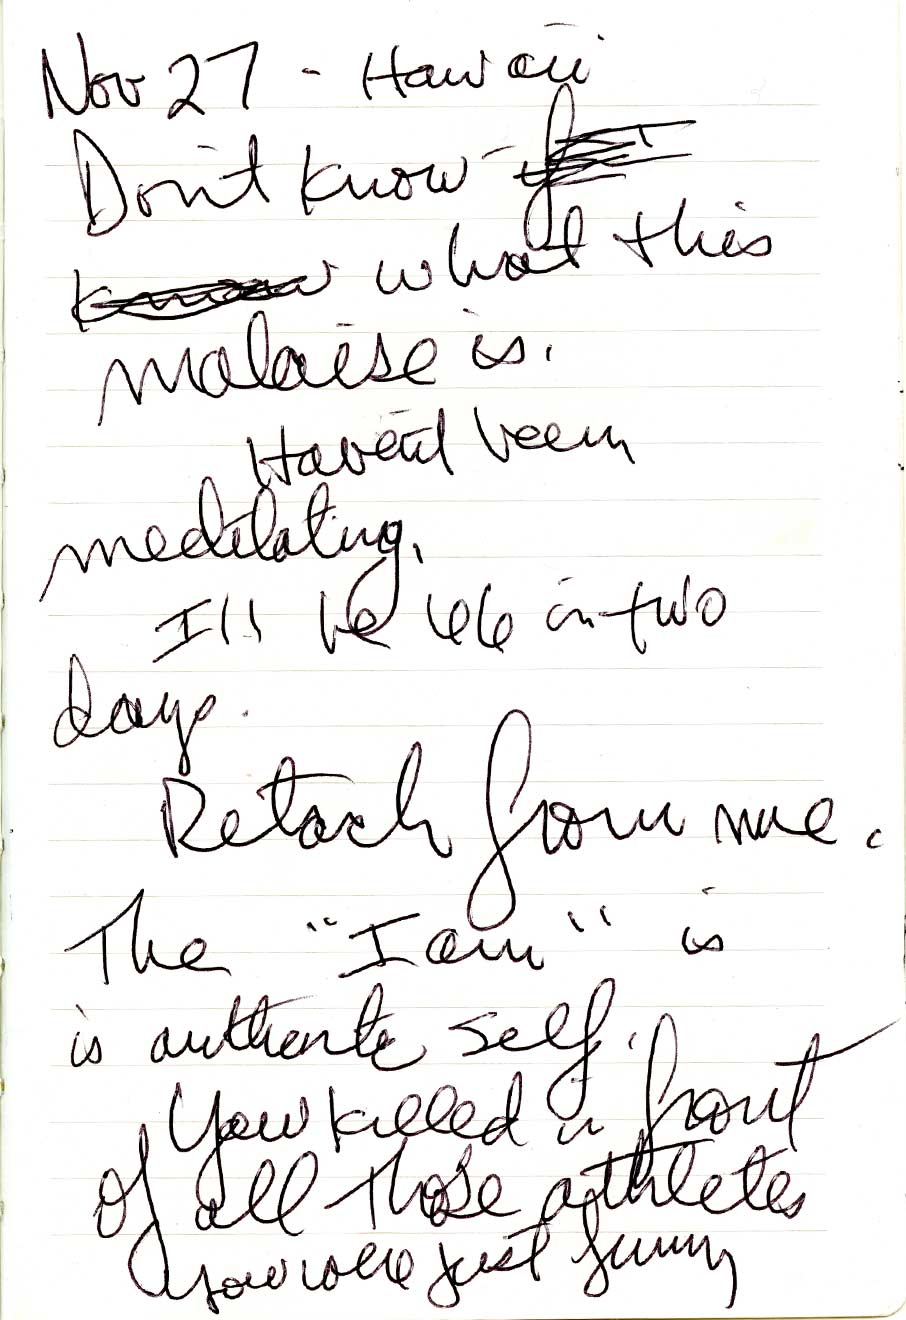 Nov 27 - Hawaii
Don't know -
know what this
malaise is.
Haven't been
meditating.
I'll be 66 in two
days.
Detach from me.
The "I am" is
is authentic self.
You killed in front
of all those athletes
You were just funny